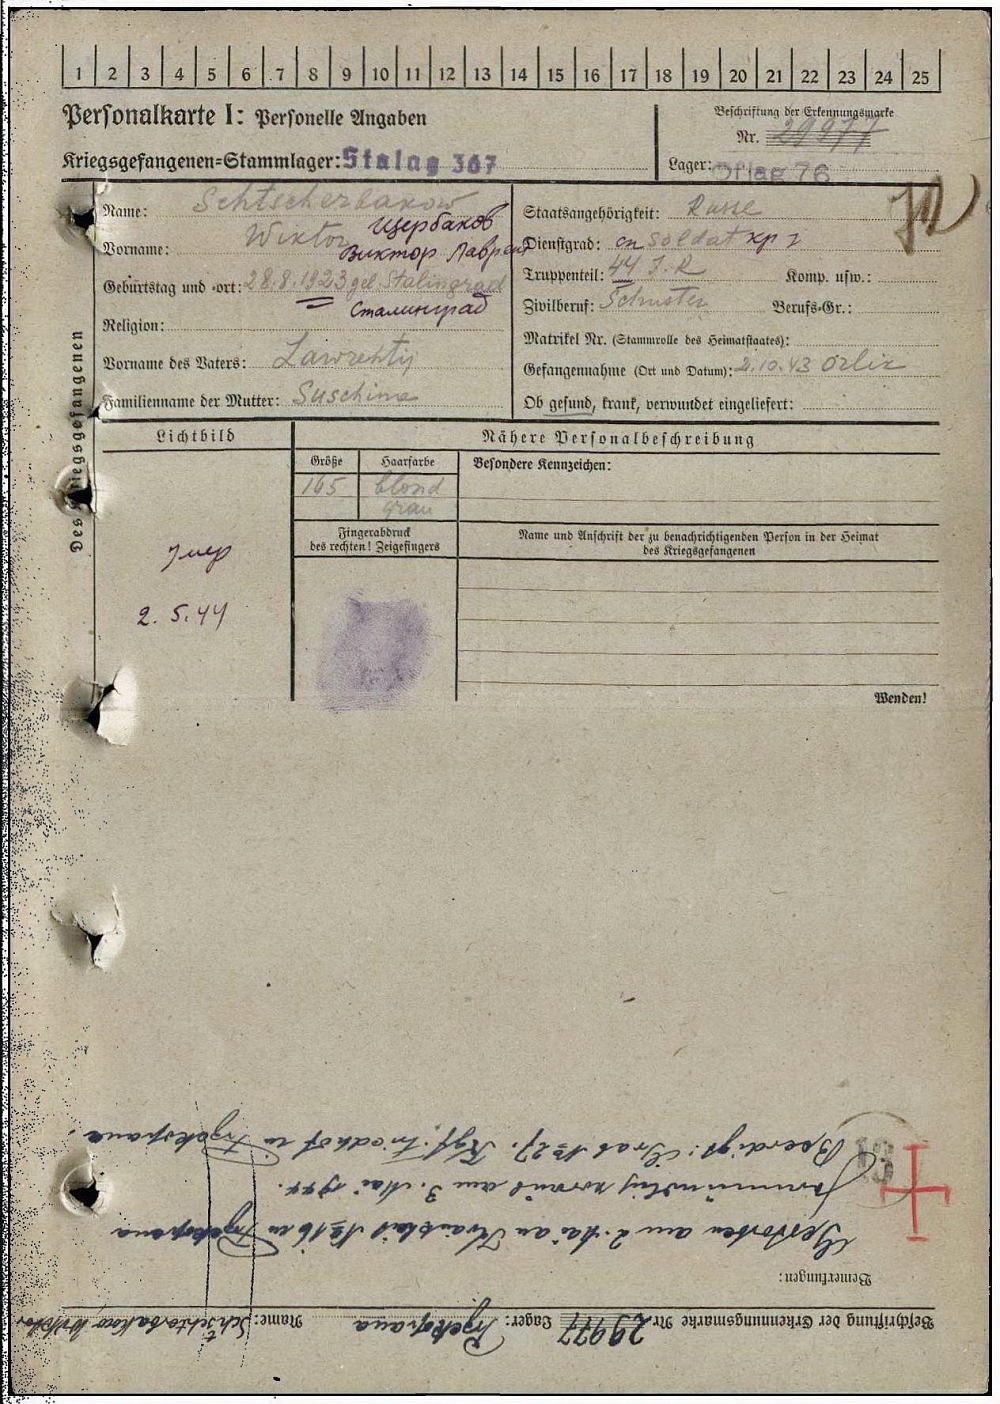 1 2 3 4 5 6 7 8 9 10 11 12 13 14 15 16 17 18 19 20 21 22 23 24 25
Personalkarte I: Personelle Angaben
Kriegsgefangenen=Stammlager: Stalag 367
Beschriftung der Erkennungsmarke
Nr. 29977
Lager: Oflag 76
Des Kriegsgefangenen
Name: Schtscherbakow
Щербаков
Vorname: Wiktor
Виктор Лаврент
Geburtstag und -ort: 28.8.1923 gel. Stalingrad
Сталинград
Religion:
Vorname des Vaters: Lawrentij
Familienname der Mutter: Suschina
Staatsangehörigkeit: Russe
Dienstgrad: Soldat кр
Truppenteil: 44 J.R Komp. usw.:
Zivilberuf: Schuster Berufs-Gr.:
Matrikel Nr. (Stammrolle des Heimatstaates):
Gefangennahme (Ort und Datum): 2.10.43
Ob gesund, krank, verwundet eingeliefert:
Lichtbild
умер
2.5.44
Nähere Personalbeschreibung
Größe Haarfarbe Besondere Kennzeichen:
165 blond
grau
Fingerabdruck
des rechten! Zeigefingers
Name und Anschrift der zu benachrichtigenden Person in der Heimat
des Kriegsgefangenen
Wenden!
Beschriftung der Erkennungsmarke Nr. 29977 Lager: Name: Schtschterbakow Wiktor
Bemerkungen:
Gestorben am 2. Mai an Krankheit № 16 in
am 3. Mai 1944.
Beerdigt: Grab № 27. Kgf. Friedhof in